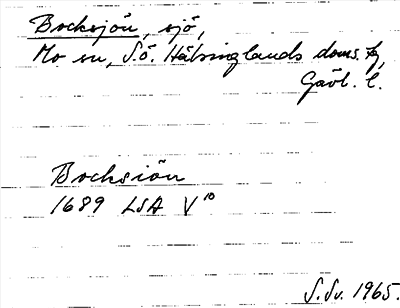 Bocksjön, sjö,
Mo sn, S.ö. Hälsinglands doms. hg,
Gävl. l.
Bocksiön
1689 LSA V¹⁰
S.Sv. 1965.